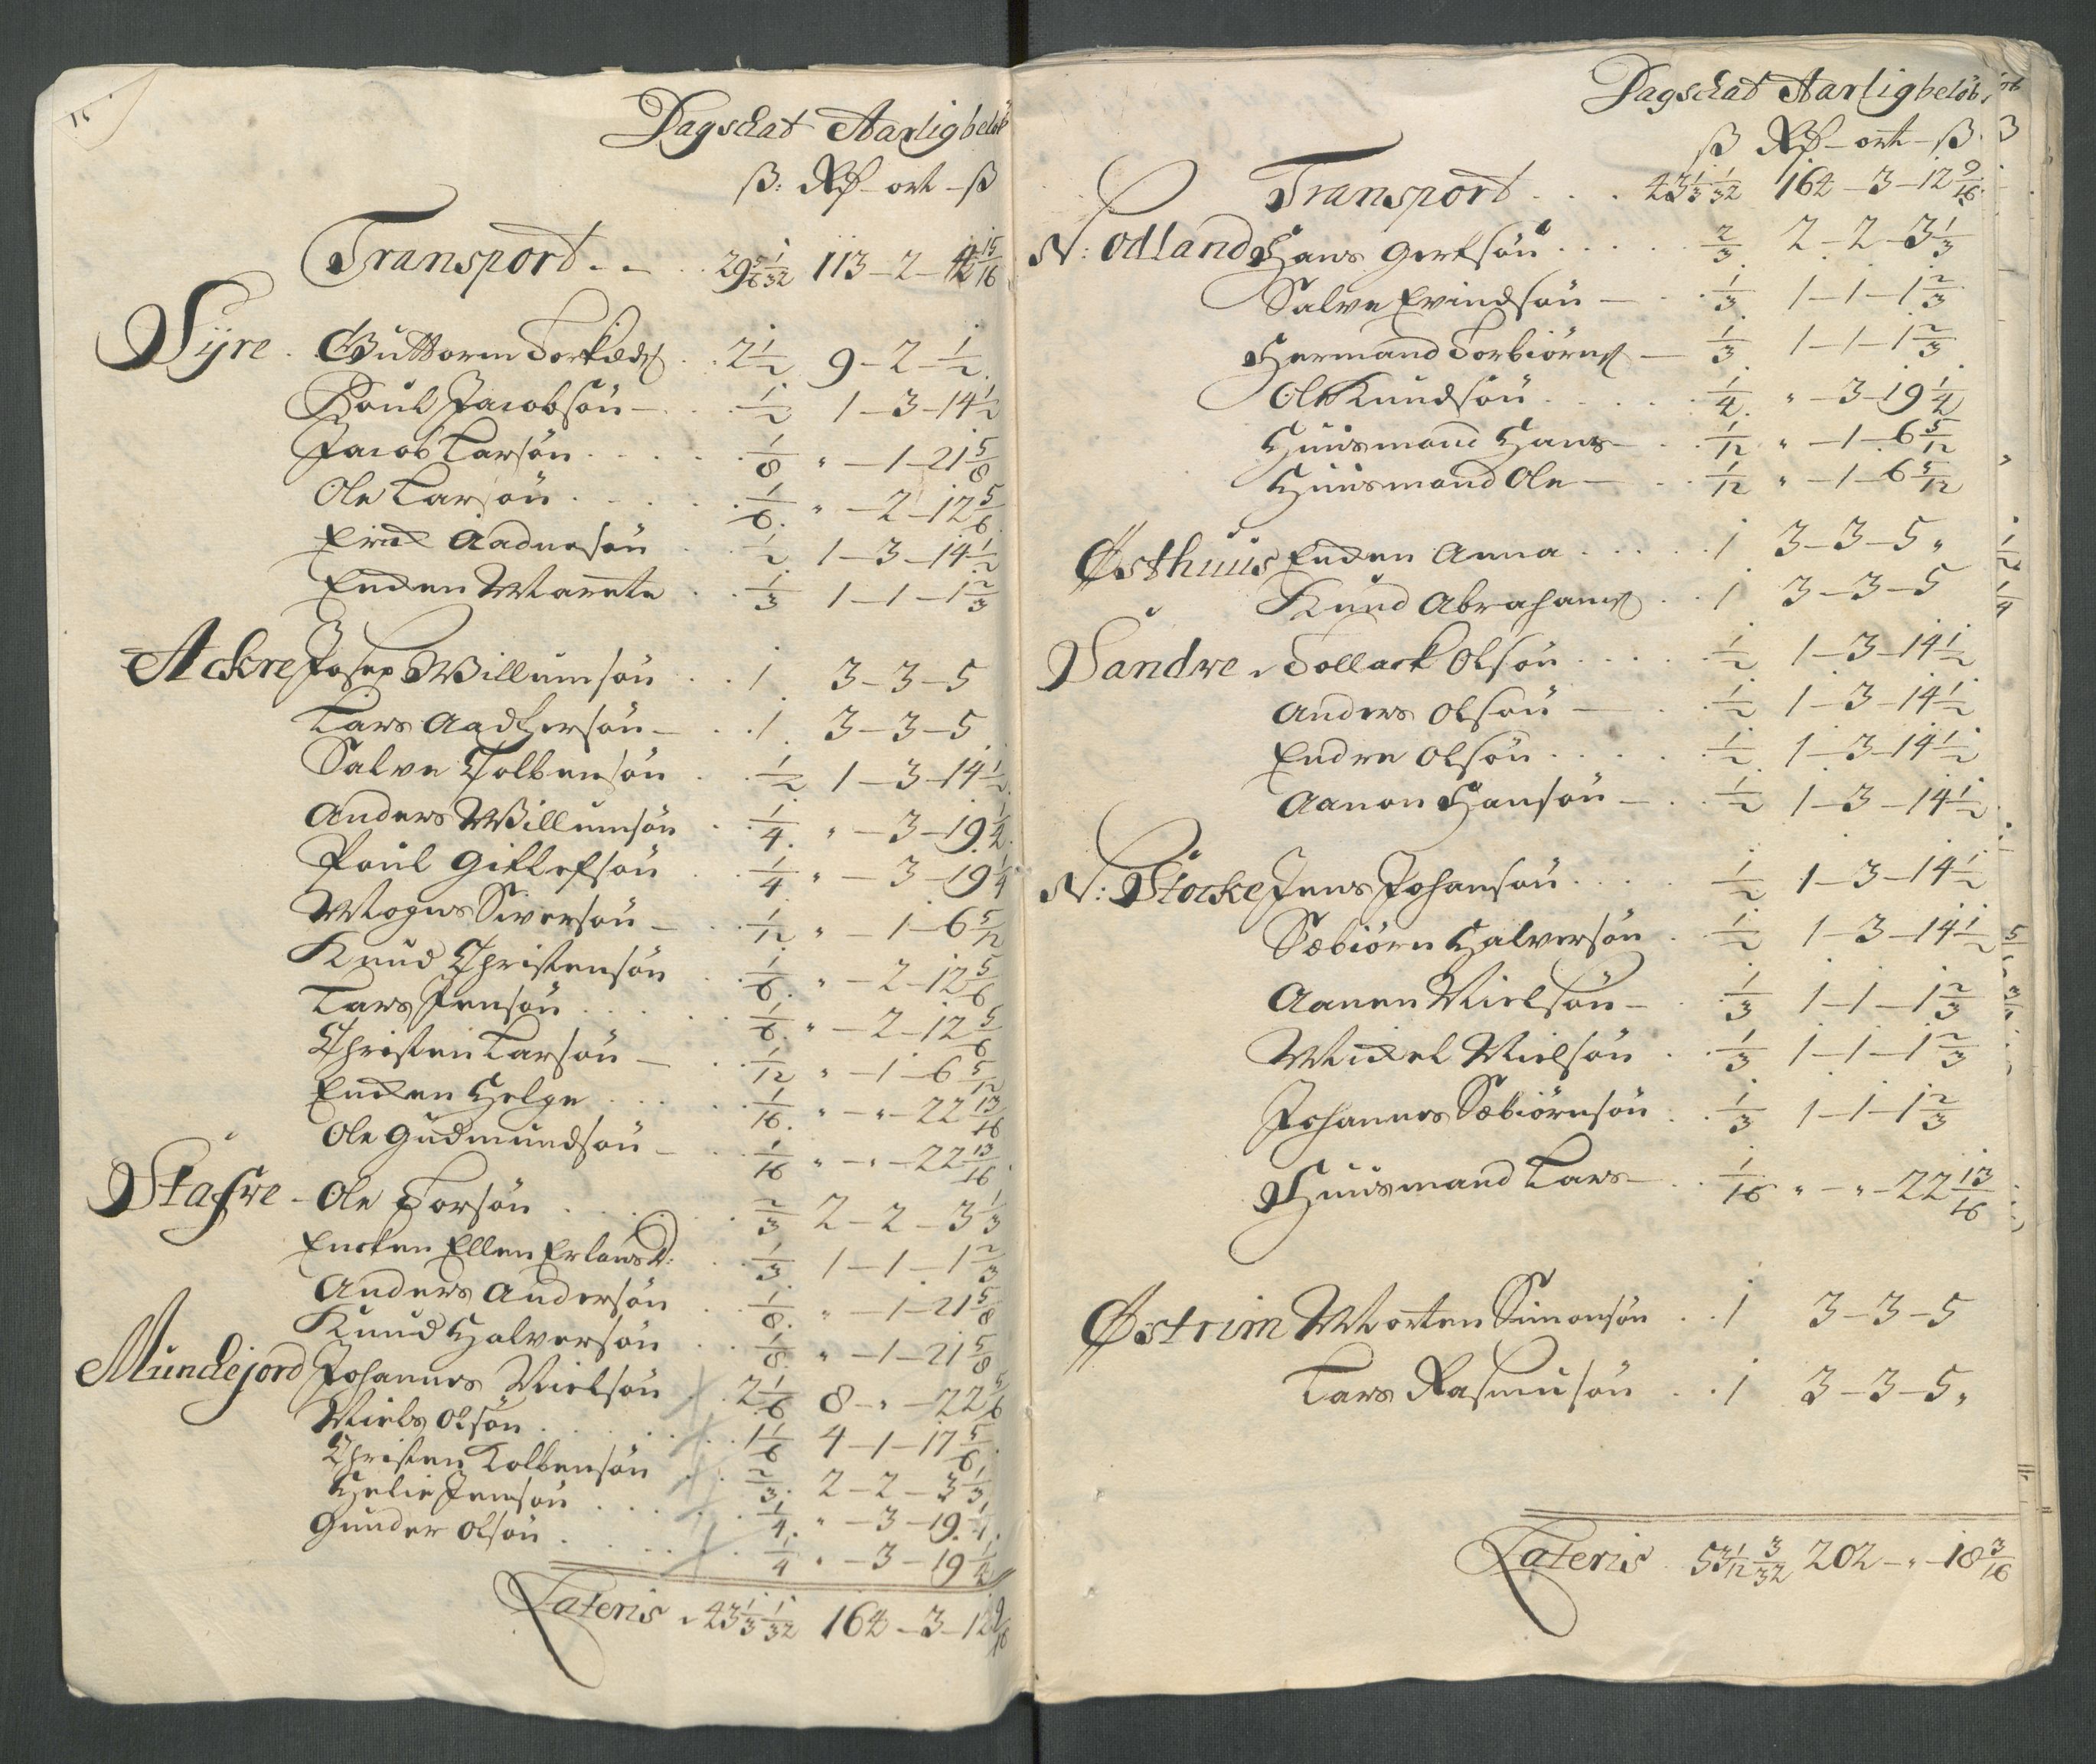 Dagschat Aarligbeløb
ß: Rd – ort – ß
Transport . . 29 5/6 1/32 113 – 2 – 4 15/16
Syre . Guttorm Torkilds . . 2 1/2 9 – 2 – 1/2
Poul Jacobsøn – . . 1/2 1 – 3 – 14 1/2
Jacob Larsøn . . . . 1/8 " – 1 – 21 5/8
Ole Larsøn . . . . 1/6 " – 2 – 12 5/6
Erick Aadnesøn . . 1/2 1 – 3 – 14 1/2
Encken Marete . . 1/3 1 – 1 – 1 2/3
Ackre Josep Willumsøn . . 1 3 – 3 – 5
Lars Aadsersøn – . . 1 3 – 3 – 5
Salve Tolbensøn . . 1/2 1 – 3 – 14 1/2
Anders Willumsøn . . 1/4 " – 3 – 19 1/4
Poul Gitlefsøn . . 1/4 " – 3 – 19 1/4
Mogns Siversøn – . . 1/12 " – 1 – 6 5/12
Knud Christensøn . . 1/6 " – 2 – 12 5/6
Lars Jensøn . . . . 1/6 " – 2 – 12 5/6
Christen Larsøn – . . 1/12 " – 1 – 6 5/12
Encken Helge . . . . 1/16 " – " – 22 13/16
Ole Gudmundsøn – . . 1/16 " – " – 22 13/16
Stafre – Ole Torsøn . . . . 2/3 2 – 2 – 3 1/3
Encken Ellen Erlands d: . . 1/3 1 – 1 – 1 2/3
Anders Andersøn . . 1/8 " – 1 – 21 5/8
Knud Halversøn . . 1/8 " – 1 – 21 5/8
Munckejord Johannes Nielsøn . 2 1/6 8 – " – 22 5/6
Niels Olsøn . . . . 1 1/6 4 – 1 – 17 5/6
Christen Tolbensøn . . 2/3 2 – 2 – 3 1/3
Helie Jensøn . . . . 1/4 " – 3 – 19 1/4
Gunder Olsøn . . . . 1/4 " – 3 – 19 1/4
Lateris . 43 1/3 1/32 164 – 3 – 12 9/16
Dagschat Aarligbeløb
ß Rd – ort – ß
Transport . . . 43 1/3 1/32 164 – 3 – 12 9/16
N: Odland Hans Gertsøn . . . . 2/3 2 – 2 – 3 1/3
Salve Evindsøn – . . 1/3 1 – 1 – 1 2/3
Hermand Torbiørns – 1/3 1 – 1 – 1 2/3
Ole Knudsøn . . . . 1/4 " – 3 – 19 1/4
Huusmand Hans – . . 1/12 " – 1 – 6 5/12
Huusmand Ole – . . 1/12 " – 1 – 6 5/12
Østhuus Encken Anna . . . . 1 3 – 3 – 5 "
Knud Abrahams . . 1 3 – 3 – 5
Sandve . Tollack Olsøn . . . . 1/2 1 – 3 – 14 1/2
Anders Olsøn – . . 1/2 1 – 3 – 14 1/2
Endre Olsøn . . . . 1/2 1 – 3 – 14 1/2
Aanon Hansøn – . . 1/2 1 – 3 – 14 1/2
N: Stocke Jens Johansøn . . . . 1/2 1 – 3 – 14 1/2
Sæbiørn Halversøn . . 1/2 1 – 3 – 14 1/2
Aanen Nielsøn – . . 1/3 1 – 1 – 1 2/3
Mickel Nielsøn . . 1/3 1 – 1 – 1 2/3
Johannes Sæbiørnsøn . . 1/3 1 – 1 – 1 2/3
Huusmand Lars – . . 1/16 " – " – 22 13/16
Østrim Morten Simonsøn . . 1 3 – 3 – 5
Lars Rasmusøn . . 1 3 – 3 – 5 "
Lateris 53 1/12 3/32 202 – " – 18 3/16